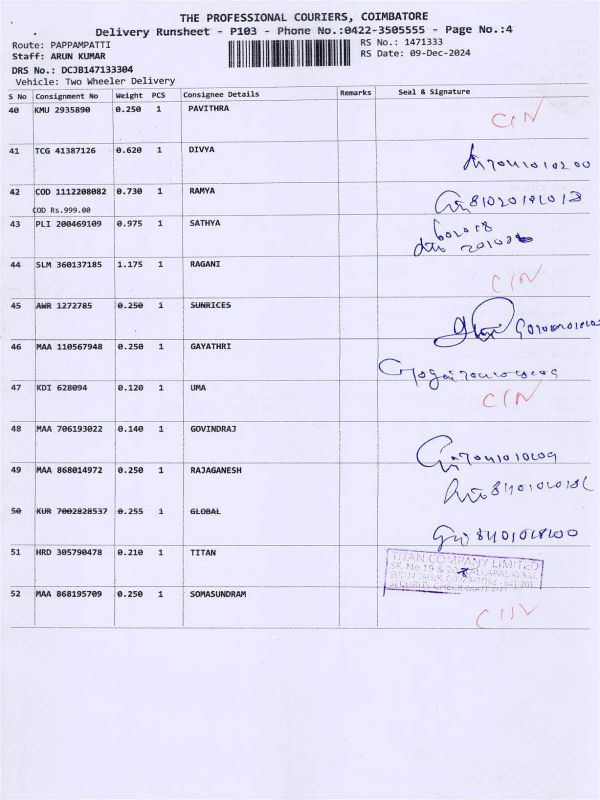 THE PROFESSIONAL COURIERS, COIMBATORE
Delivery Runsheet - P103 - Phone No.:0422-3505555 - Page No.:4
Route: PAPPAMPATTI RS No.: 1471333
Staff: ARUN KUMAR RS Date: 09-Dec-2024
DRS No.: DCJB147133304
Vehicle: Two Wheeler Delivery
S No Consignment No Weight PCS Consignee Details Remarks Seal & Signature
40 KMU 2935890 0.250 1 PAVITHRA CIN
41 TCG 41387126 0.620 1 DIVYA
42 COD 1112208082 0.730 1 RAMYA
COD Rs.999.00
43 PLI 200469109 0.975 1 SATHYA
44 SLM 360137185 1.175 1 RAGANI CIN
45 AWR 1272785 0.250 1 SUNRICES
46 MAA 110567948 0.250 1 GAYATHRI
47 KDI 628094 0.120 1 UMA CIN
48 MAA 706193022 0.140 1 GOVINDRAJ
49 MAA 868014972 0.250 1 RAJAGANESH
50 KUR 7002828537 0.255 1 GLOBAL
51 HRD 305790478 0.210 1 TITAN
TITAN COMPANY LIMITED
52 MAA 868195709 0.250 1 SOMASUNDRAM CIN